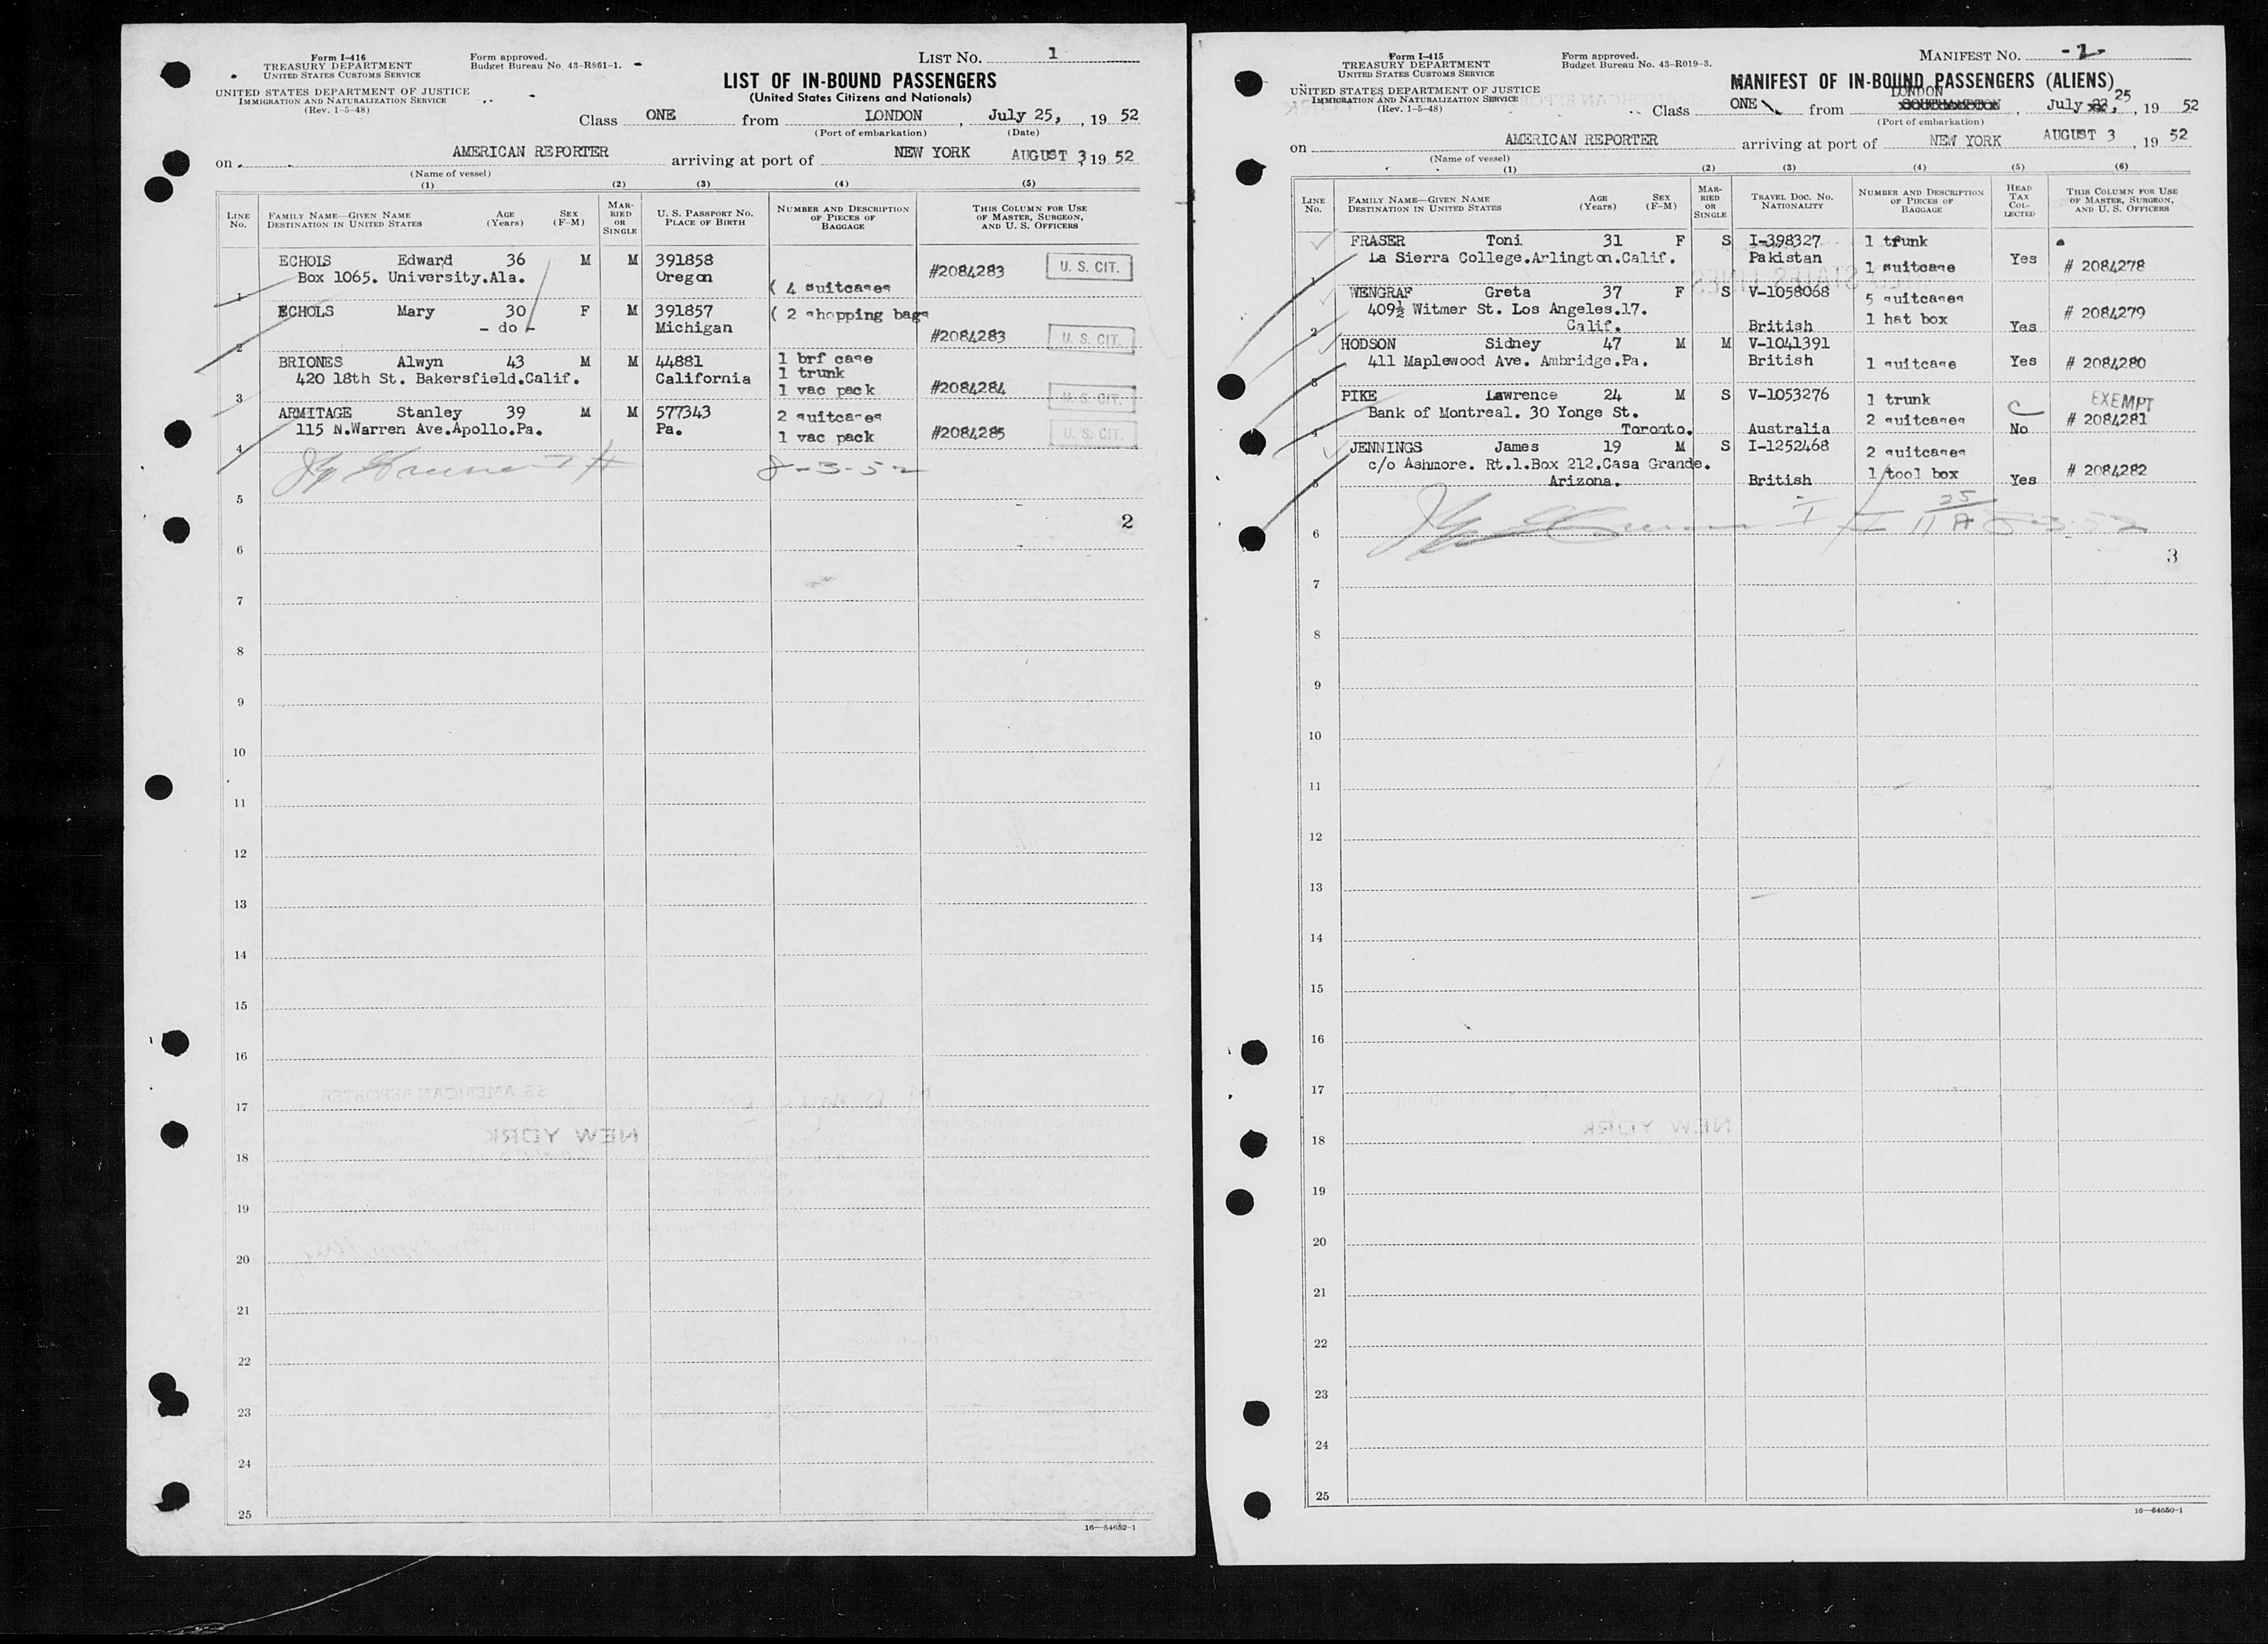 Form I-416
TREASURY DEPARTMENT
UNITED STATES CUSTOMS SERVICE
UNITED STATES DEPARTMENT OF JUSTICE
IMMIGRATION AND NATURALIZATION SERVICE
(Rev. 1-5-48)
Form approved.
Budget Bureau No. 43-R861-1.
LIST NO. 1
LIST OF IN-BOUND PASSENGERS
(United States Citizens and Nationals)
Class ONE from LONDON, July 25, , 19 52
(Port of embarkation) (Date)
on AMERICAN REPORTER arriving at port of NEW YORK AUGUST 3, 19 52
(Name of vessel)
(1) (2) (3) (4) (5)
LINE No. FAMILY NAME—GIVEN NAME DESTINATION IN UNITED STATES AGE (Years) SEX (F-M) MARRIED OR SINGLE U. S. PASSPORT NO. PLACE OF BIRTH NUMBER AND DESCRIPTION OF PIECES OF BAGGAGE THIS COLUMN FOR USE OF MASTER, SURGEON, AND U. S. OFFICERS
1 ECHOLS Edward 36 M M 391858 #2084283 U. S. CIT.
Box 1065. University.Ala. Oregon ( 4 suitcases
2 ECHOLS Mary 30 F M 391857 ( 2 shopping bags
- do - Michigan #2084283 U. S. CIT.
3 BRIONES Alwyn 43 M M 44881 1 brf case
1 trunk
420 18th St. Bakersfield.Calif. California 1 vac pack #2084284 U. S. CIT.
4 ARMITAGE Stanley 39 M M 577343 2 suitcases
115 N.Warren Ave.Apollo.Pa. Pa. 1 vac pack #2084285 U. S. CIT.
8-3-52
5
2
6
7
8
9
10
11
12
13
14
15
16
17
SS AMERICAN REPORTER
NEW YORK
18
19
20
21
22
23
24
25
16—54652-1
Form I-415
TREASURY DEPARTMENT
UNITED STATES CUSTOMS SERVICE
UNITED STATES DEPARTMENT OF JUSTICE
IMMIGRATION AND NATURALIZATION SERVICE
(Rev. 1-5-48)
Form approved.
Budget Bureau No. 43-R019-3.
MANIFEST NO. -2-
MANIFEST OF IN-BOUND PASSENGERS (ALIENS)
LONDON
Class ONE from SOUTHAMPTON, July 23, 25, 19 52
(Port of embarkation)
on AMERICAN REPORTER arriving at port of NEW YORK AUGUST 3, 19 52
(Name of vessel)
(1) (2) (3) (4) (5) (6)
LINE No. FAMILY NAME—GIVEN NAME DESTINATION IN UNITED STATES AGE (Years) SEX (F-M) MARRIED OR SINGLE TRAVEL DOC. NO. NATIONALITY NUMBER AND DESCRIPTION OF PIECES OF BAGGAGE HEAD TAX COLLECTED THIS COLUMN FOR USE OF MASTER, SURGEON, AND U. S. OFFICERS
1 FRASER Toni 31 F S I-398327 1 trunk
La Sierra College.Arlington.Calif. Pakistan 1 suitcase Yes # 2084278
2 WENGRAF Greta 37 F S V-1058068 5 suitcases
409½ Witmer St. Los Angeles.17. 1 hat box # 2084279
Calif. British Yes
3 HODSON Sidney 47 M M V-1041391
411 Maplewood Ave. Ambridge.Pa. British 1 suitcase Yes # 2084280
4 PIKE Lawrence 24 M S V-1053276 1 trunk EXEMPT
Bank of Montreal. 30 Yonge St. 2 suitcases # 2084281
Toronto. Australia No
5 JENNINGS James 19 M S I-1252468 2 suitcases
c/o Ashmore. Rt.1.Box 212.Casa Grande. 1 tool box # 2084282
Arizona. British Yes
6
3
7
8
9
10
11
12
13
14
15
16
17
NEW YORK
18
19
20
21
22
23
24
25
16—54650-1